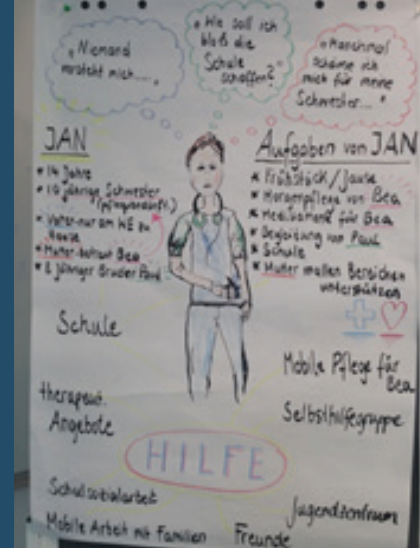 "Niemand
versteht mich....."
"Wie soll ich
bloß die
Schule
schaffen?"
"Manchmal
schäme ich
mich für meine
Schwester..."
JAN
* 14 Jahre
* 10 jährige Schwester
* Vater nur am WE zu
Hause
* Mutter betreut Bea
* 8 jähriger Bruder Paul
Aufgaben von JAN
* Frühstück/Jause
* Morgenpflege von Bea
* Medikamente für Bea
* Begleitung von Paul
* Schule
* Mutter in allen Bereichen
unterstützen
Schule
Mobile Pflege für
Bea
therapeut.
Angebote
Selbsthilfegruppe
HILFE
Schulsozialarbeit
Jugendzentrum
Mobile Arbeit mit Familien
Freunde